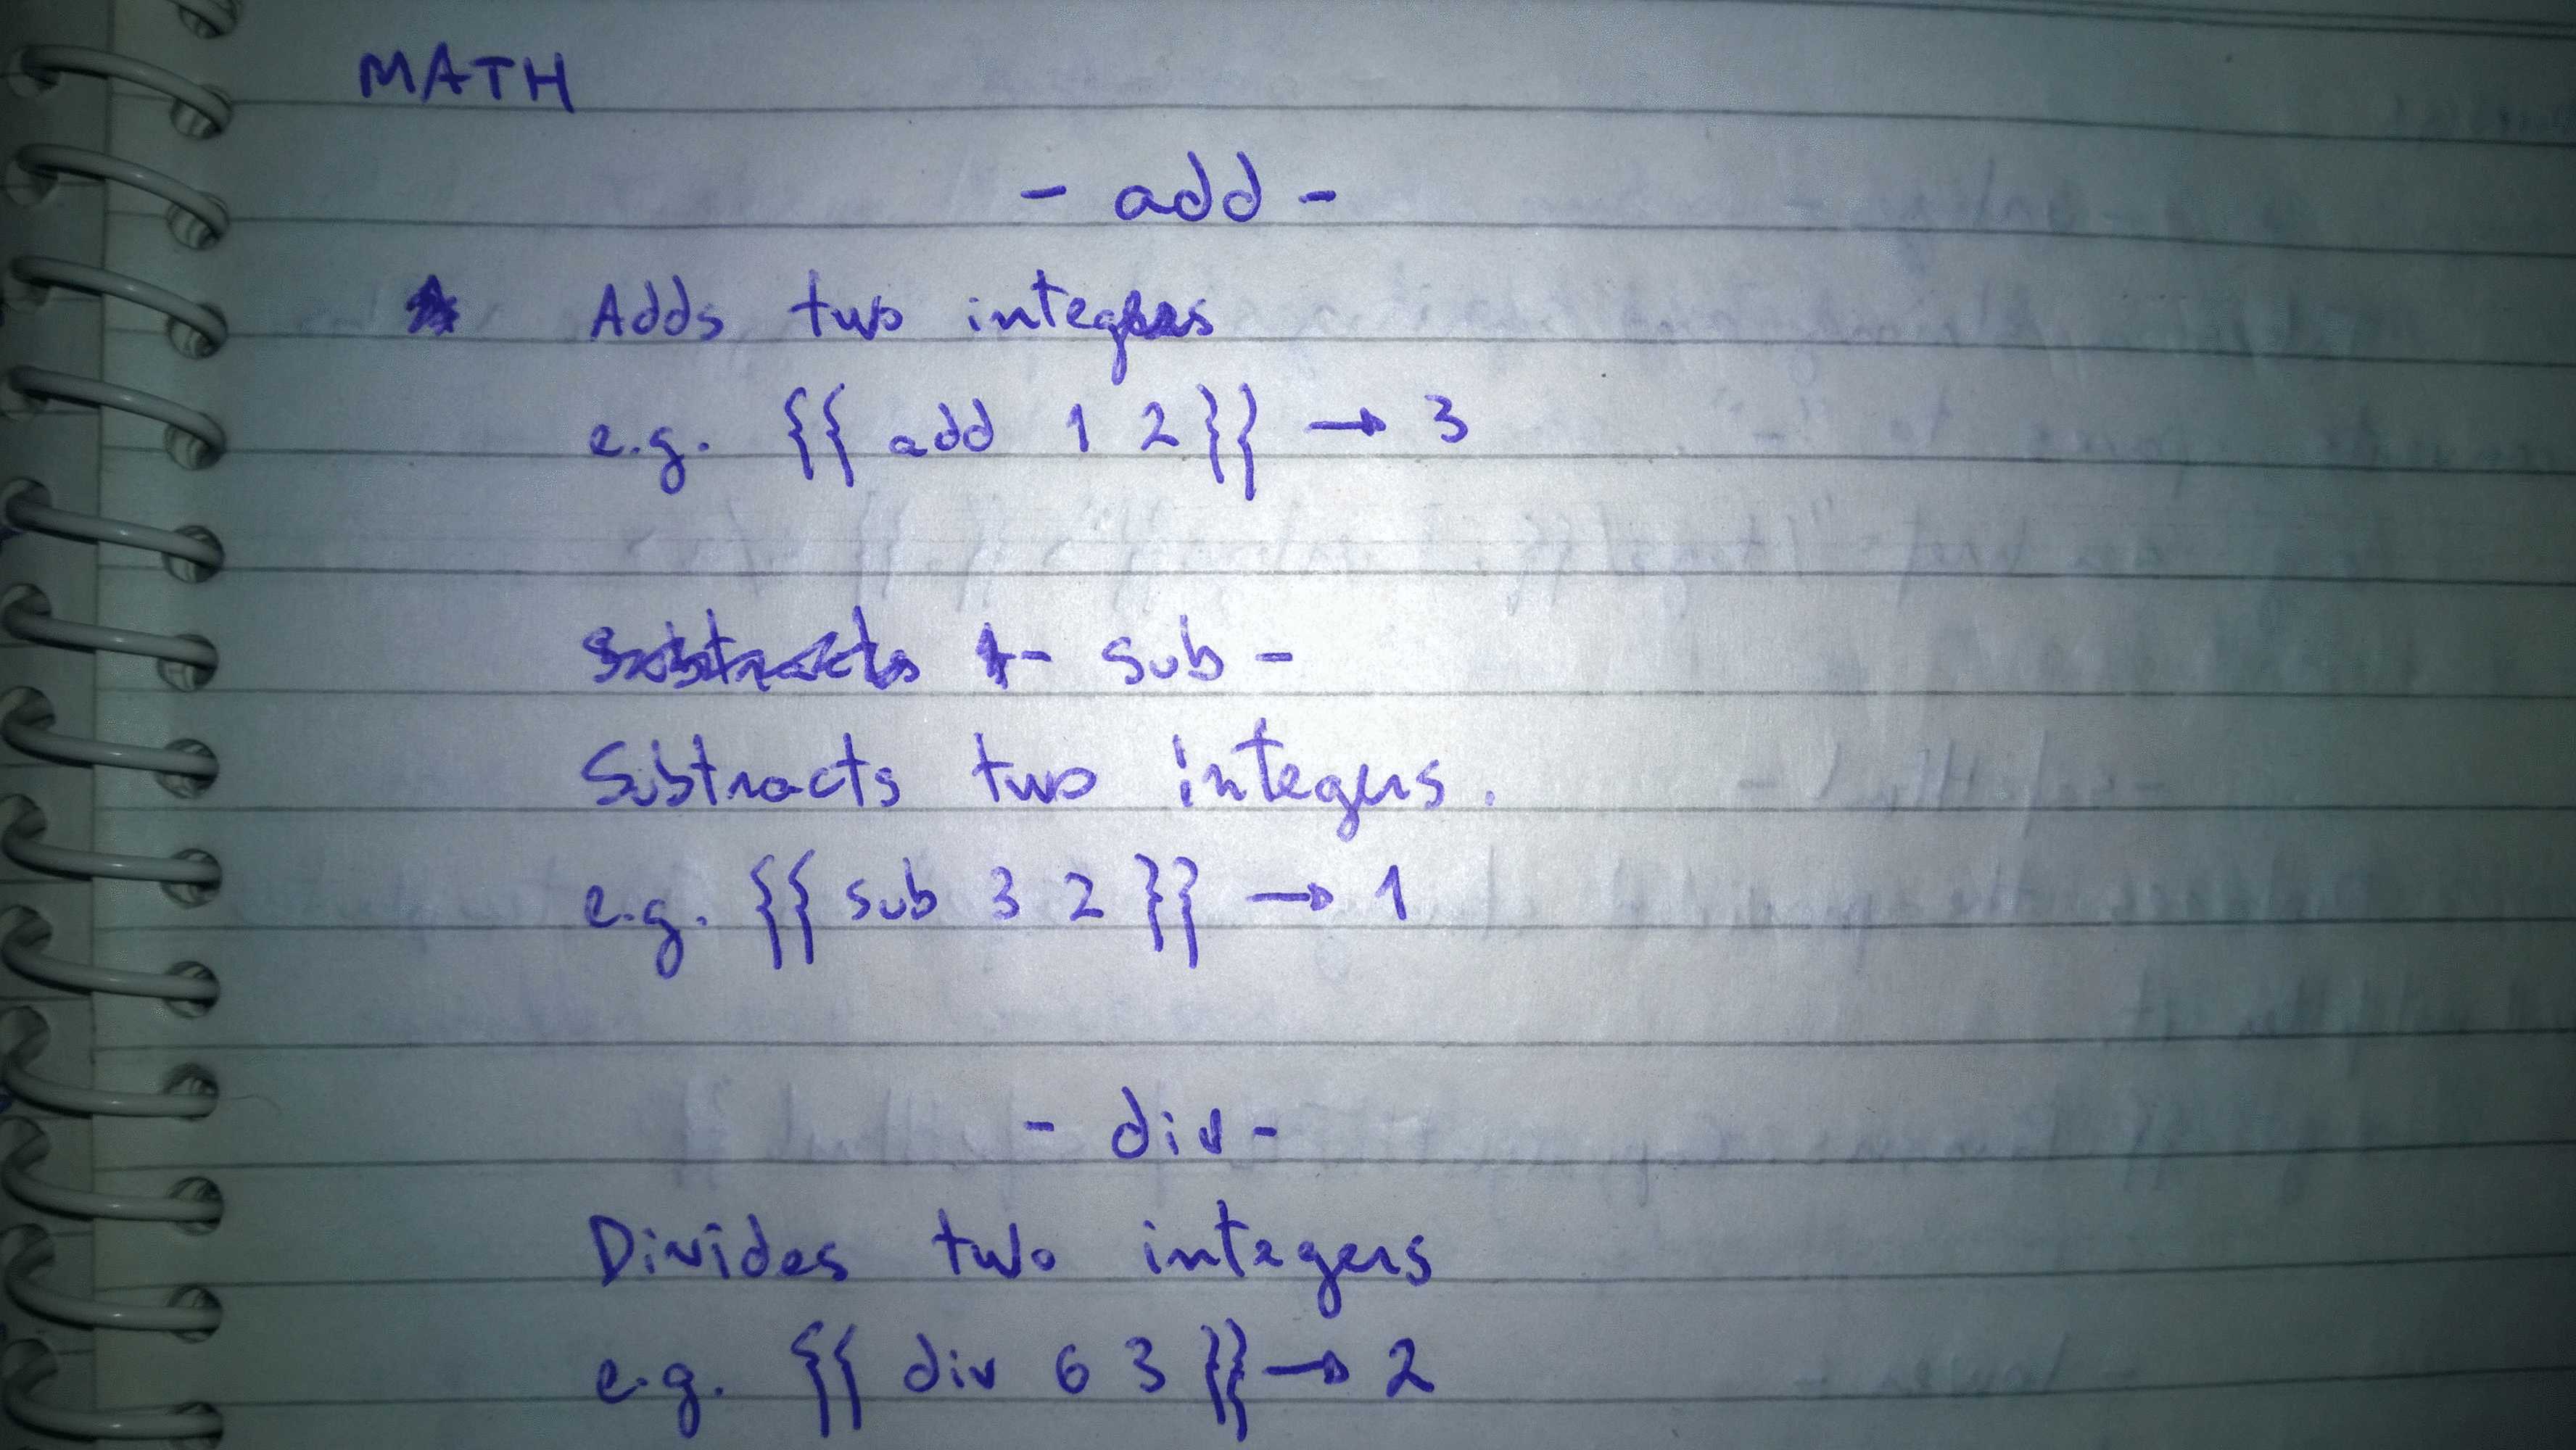 MATH
- add -
Adds two integers
e.g. {{ add 1 2 }} → 3
- sub -
Subtracts two integers.
e.g. {{ sub 3 2 }} → 1
- div -
Divides two integers
e.g. {{ div 6 3 }} → 2